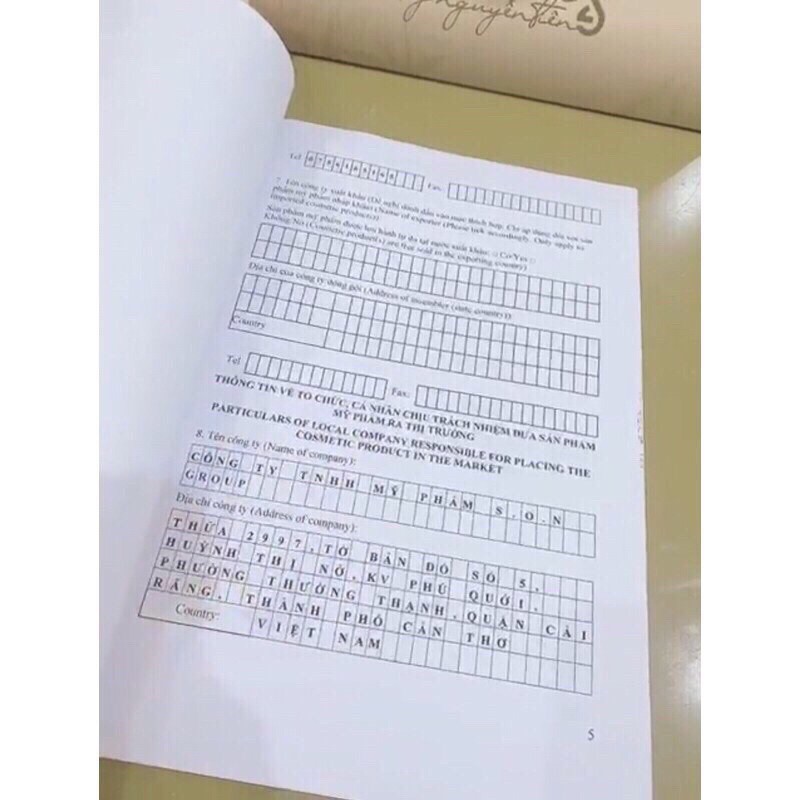 nguyên tiên
Tel
Fax:
7. Tên công ty xuất khẩu (Đề nghị đánh dấu vào mục thích hợp. Chỉ áp dụng đối với sản
phẩm mỹ phẩm nhập khẩu) (Name of exporter (Please tick accordingly. Only apply to
imported cosmetic products))
Sản phẩm mỹ phẩm được lưu hành tự do tại nước xuất khẩu: □ Có/Yes □
Không/No (Cosmetic product(s) are free sold in the exporting country)
Địa chỉ của công ty đóng gói (Address of assembler (state country)):
Country
Tel
Fax:
THÔNG TIN VỀ TỔ CHỨC, CÁ NHÂN CHỊU TRÁCH NHIỆM ĐƯA SẢN PHẨM
MỸ PHẨM RA THỊ TRƯỜNG
PARTICULARS OF LOCAL COMPANY RESPONSIBLE FOR PLACING THE
COSMETIC PRODUCT IN THE MARKET
8. Tên công ty (Name of company):
CÔNG TY TNHH MỸ PHẨM S.O.N
GROUP
Địa chỉ công ty (Address of company):
THỬA 2997, TỜ BẢN ĐỒ SỐ 5,
HUỲNH THỊ NỞ, KV PHÚ QUỚI,
PHƯỜNG THƯỜNG THẠNH, QUẬN CÁI
RĂNG, THÀNH PHỐ CẦN THƠ
Country: VIỆT NAM
5